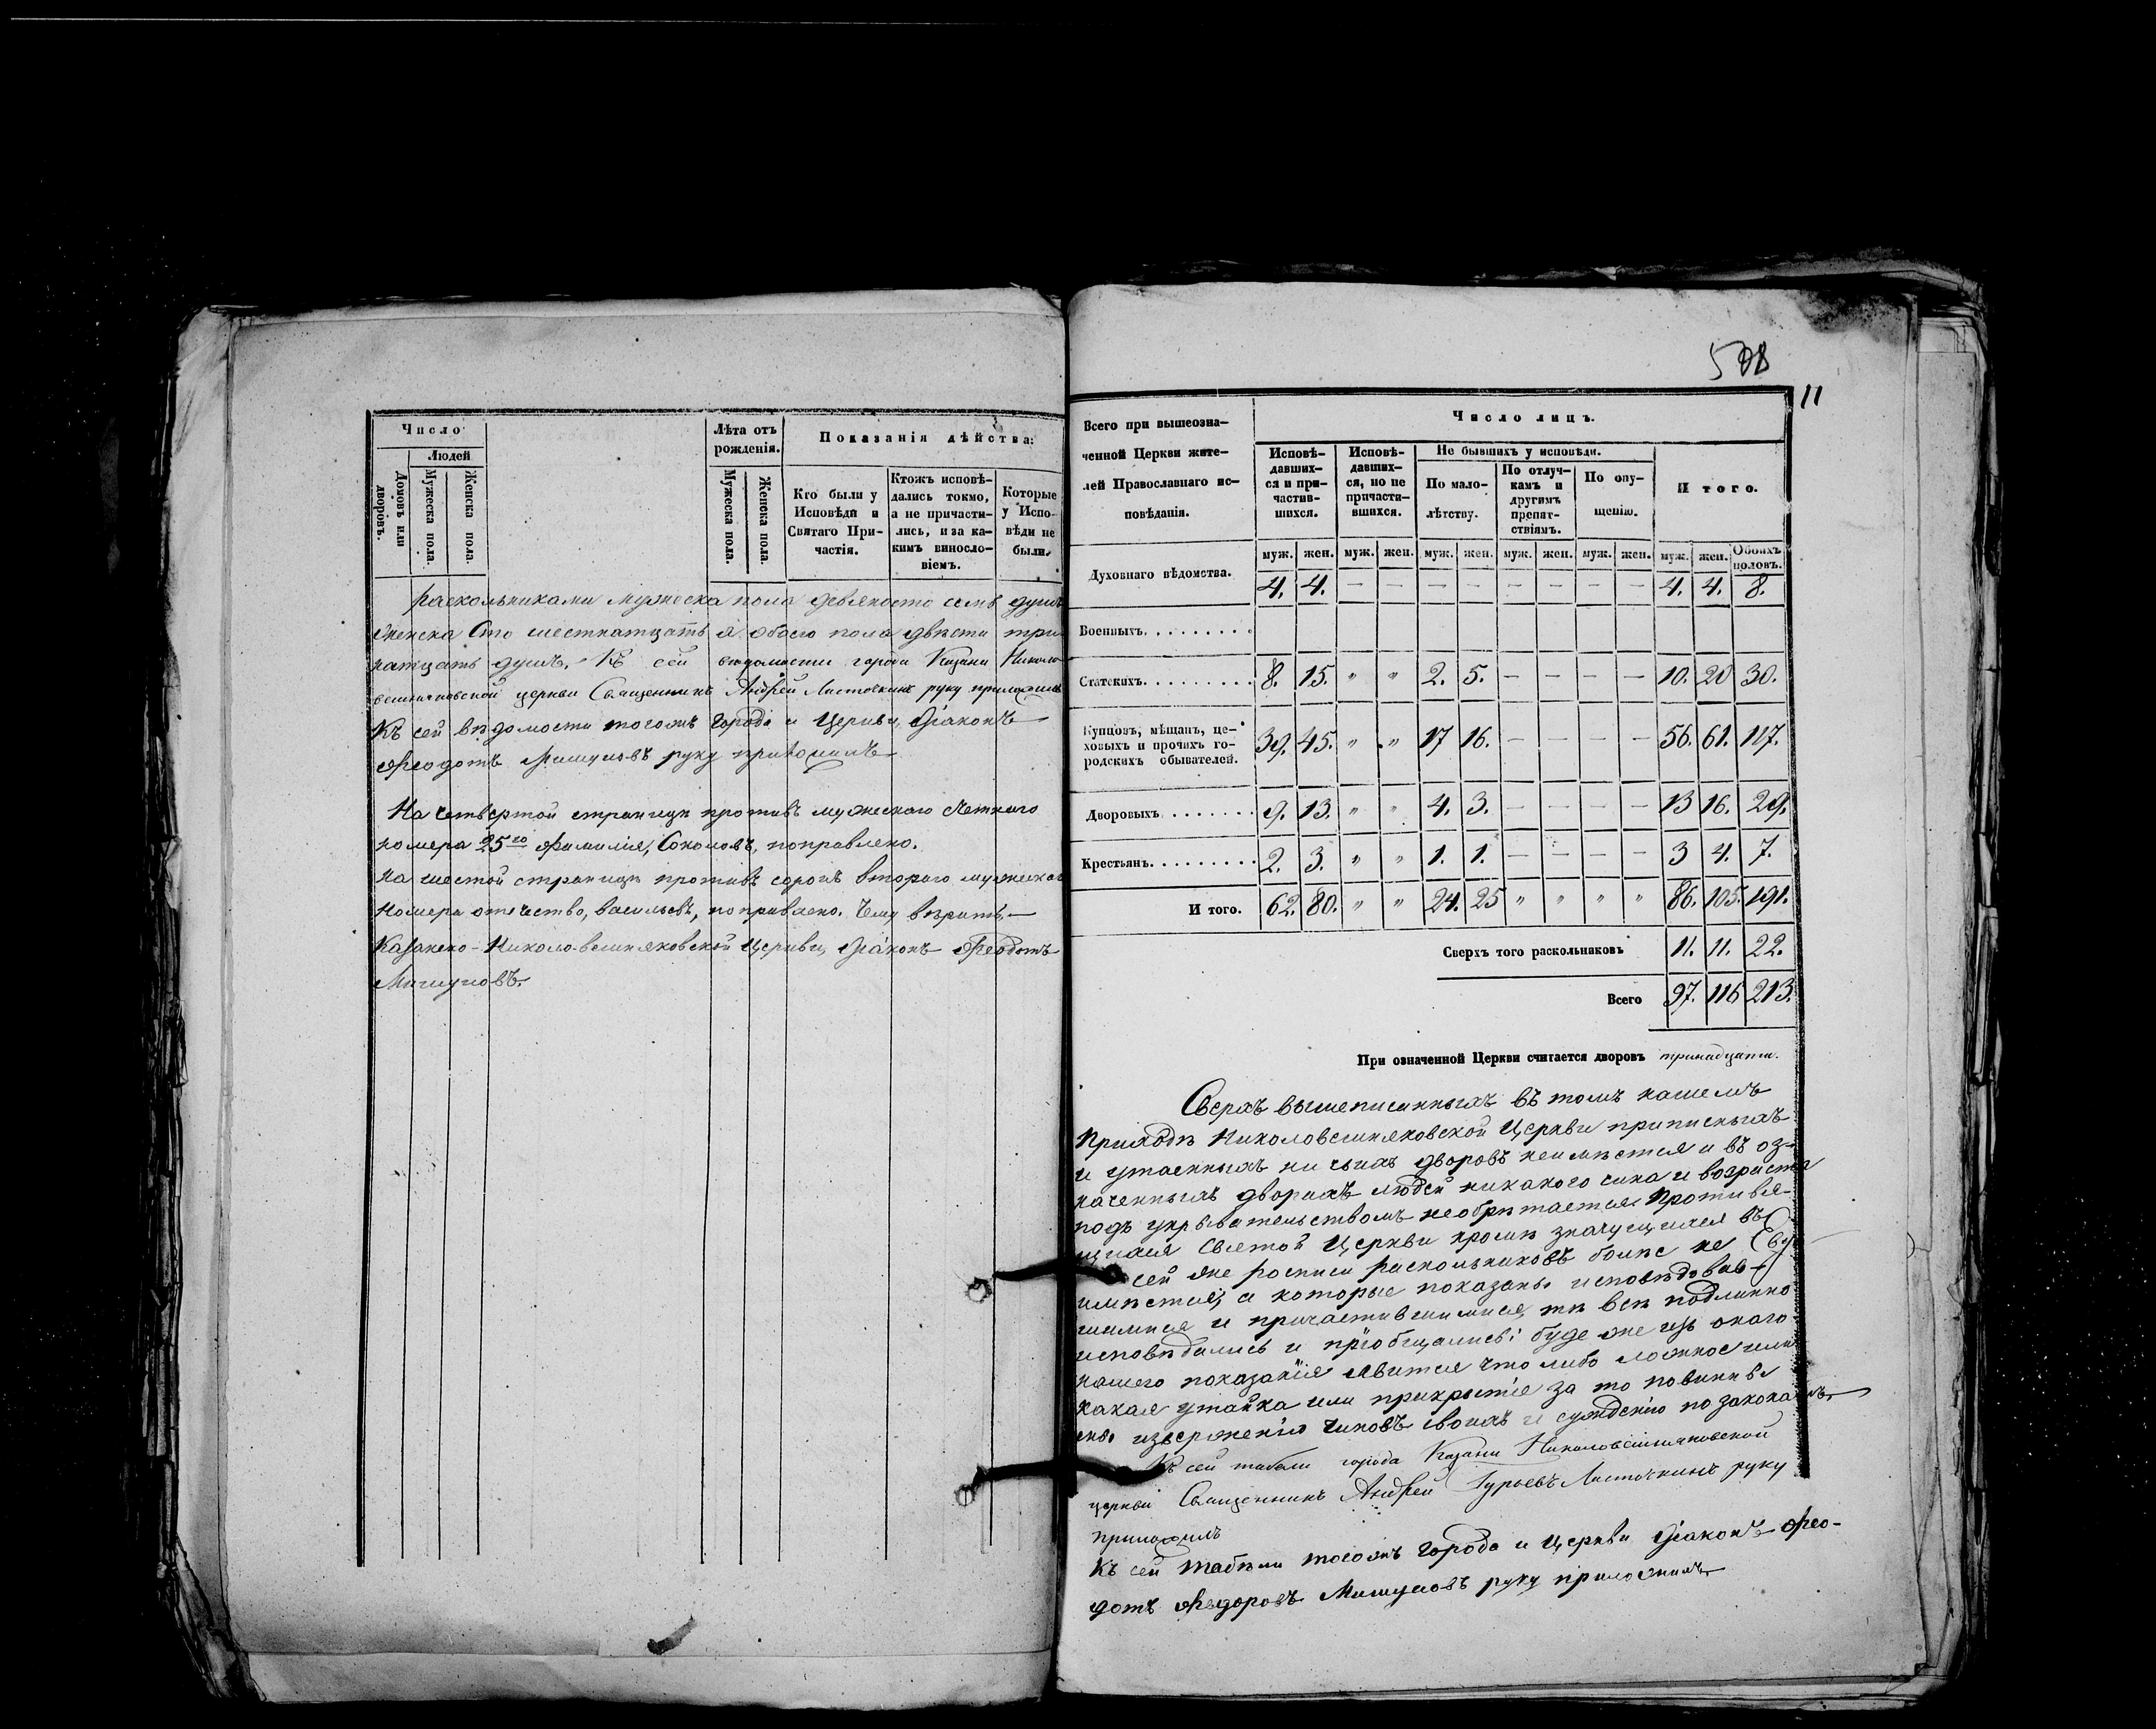 Число
Людей
Домовъ или дворовъ.
Мужеска пола.
Женска пола.
Лѣта отъ рожденія.
Мужеска пола.
Женска пола.
Показанія дѣйства:
Кто были у Исповѣди и Святаго Причастія.
Ктожъ исповѣ-
дались токмо,
а не причасти-
лись, и за ка-
кимъ виносло-
віемъ.
Которые
у Испо-
вѣди не
были.
раскольниками мужеска пола девяносто семь душъ
женска сто шестнатцать а обоего пола двѣсти три
натцать душъ. Къ сей вѣдомости города Казани Николо
вешняковской церкви Священникъ Андрей Ласточкинъ руку приложилъ
Къ сей вѣдомости тогожъ города и Церкви Діаконъ
Ѳеодотъ Мишуловъ руку приложилъ
На четвертой страницѣ противъ мужескаго счетнаго
номера 25го Фамилія, Соколовъ, поправлено.
На шестой страницѣ противъ сорокъ втораго мужеска
номера отечество, васильевъ, поправлено. Чему вѣрить
Казанско-Николо-вешняковской Церкви, Діаконъ Ѳеодотъ
Мишуловъ.
508
11
Всего при вышеозна-
ченной Церкви жите-
лей Православнаго ис-
повѣданія.
Число лицъ.
Исповѣ-
давших-
ся и при-
частив-
шихся.
Исповѣ-
давших-
ся, но не
причасти-
вшихся.
Не бывшихъ у исповѣди.
По мало-
лѣтству.
По отлуч-
камъ и
другимъ
препят-
ствіямъ.
По опу-
щенію.
Итого.
муж. жен. муж. жен. муж. жен. муж. жен. муж. жен. муж. жен. Обоихъ половъ.
Духовнаго вѣдомства. 4. 4. — — — — — — — — 4. 4. 8.
Военныхъ.
Статскихъ. 8. 15. " " 2. 5. — — — — 10. 20 30.
Купцовъ, мѣщанъ, це-
ховыхъ и прочихъ го-
родскихъ обывателей. 39. 45. " " 17 16. — — — — 56. 61. 117.
Дворовыхъ 9. 13. " " 4. 3. — — — — 13 16. 29.
Крестьянъ. 2. 3. " " 1. 1. — — — — 3 4. 7.
Итого. 62. 80. " " 24. 25 " " " " 86. 105. 191.
Сверхъ того раскольниковъ 11. 11. 22.
Всего 97. 116 213.
При означенной Церкви считается дворовъ тринадцать.
Сверхъ вышеписанныхъ въ томъ нашемъ
Приходѣ Николовешняковской Церкви приписныхъ
и утаенныхъ ни чьихъ дворовъ неимѣется и въ оз-
наченныхъ дворахъ людей никакого сина и возраста
подъ укрывательствомъ необрѣтается. Противля-
щихся Святой Церкви кромѣ значущихся въ
сей же росписи раскольниковъ болѣе не
имѣется, а которые показаны исповѣдовав-
шимися и причастившимися, тѣ всѣ подлинно
исповѣдались и пріобщались: буде же изъ онаго
нашего показанія явится что либо ложное или
какая утайка или прикрытіе за то повинны
изверженію чиновъ своихъ и сужденію по законамъ.
Къ сей табели города Казани Николовешняковской
церкви Священникъ Андрей Гурьевъ Ласточкинъ руку
приложилъ
Къ сей табели тогожъ города и Церкви Діаконъ Ѳео-
дотъ Ѳедоровъ Мишуловъ руку приложилъ